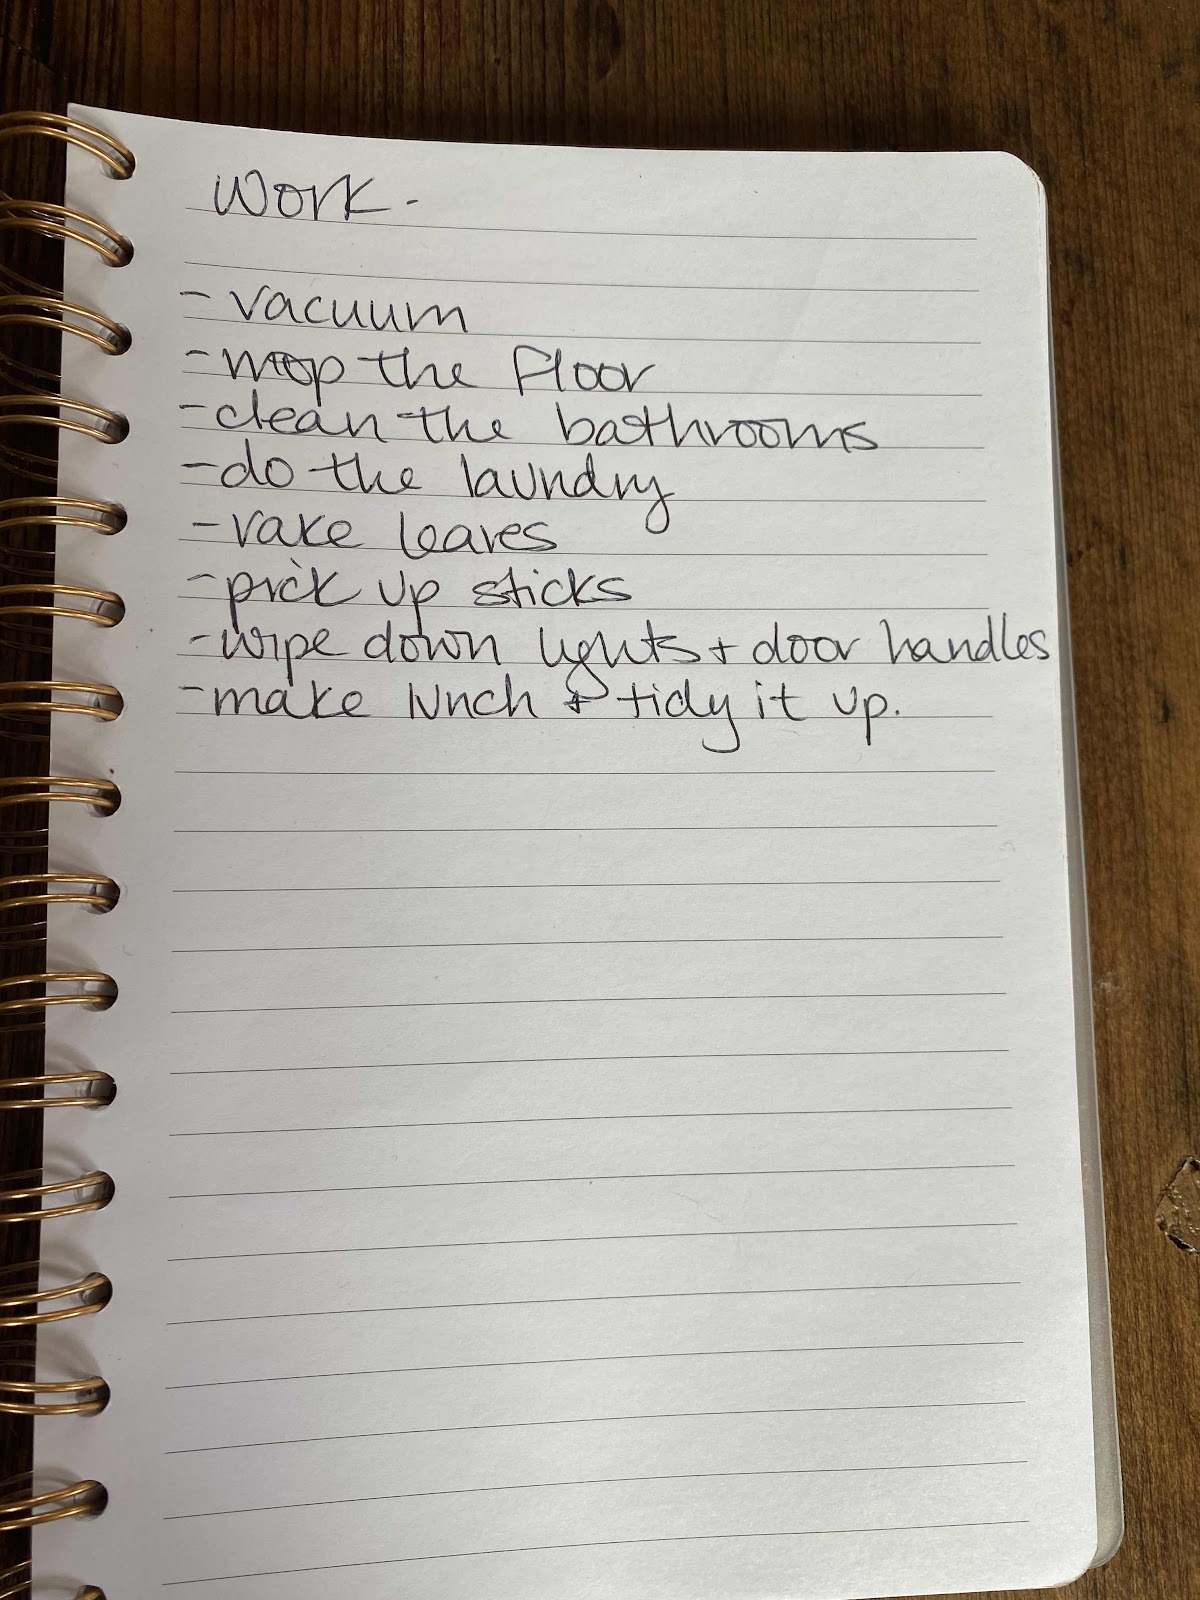 Work.
- vacuum
- mop the floor
- clean the bathrooms
- do the laundry
- rake leaves
- pick up sticks
- wipe down lights + door handles
- make lunch + tidy it up.